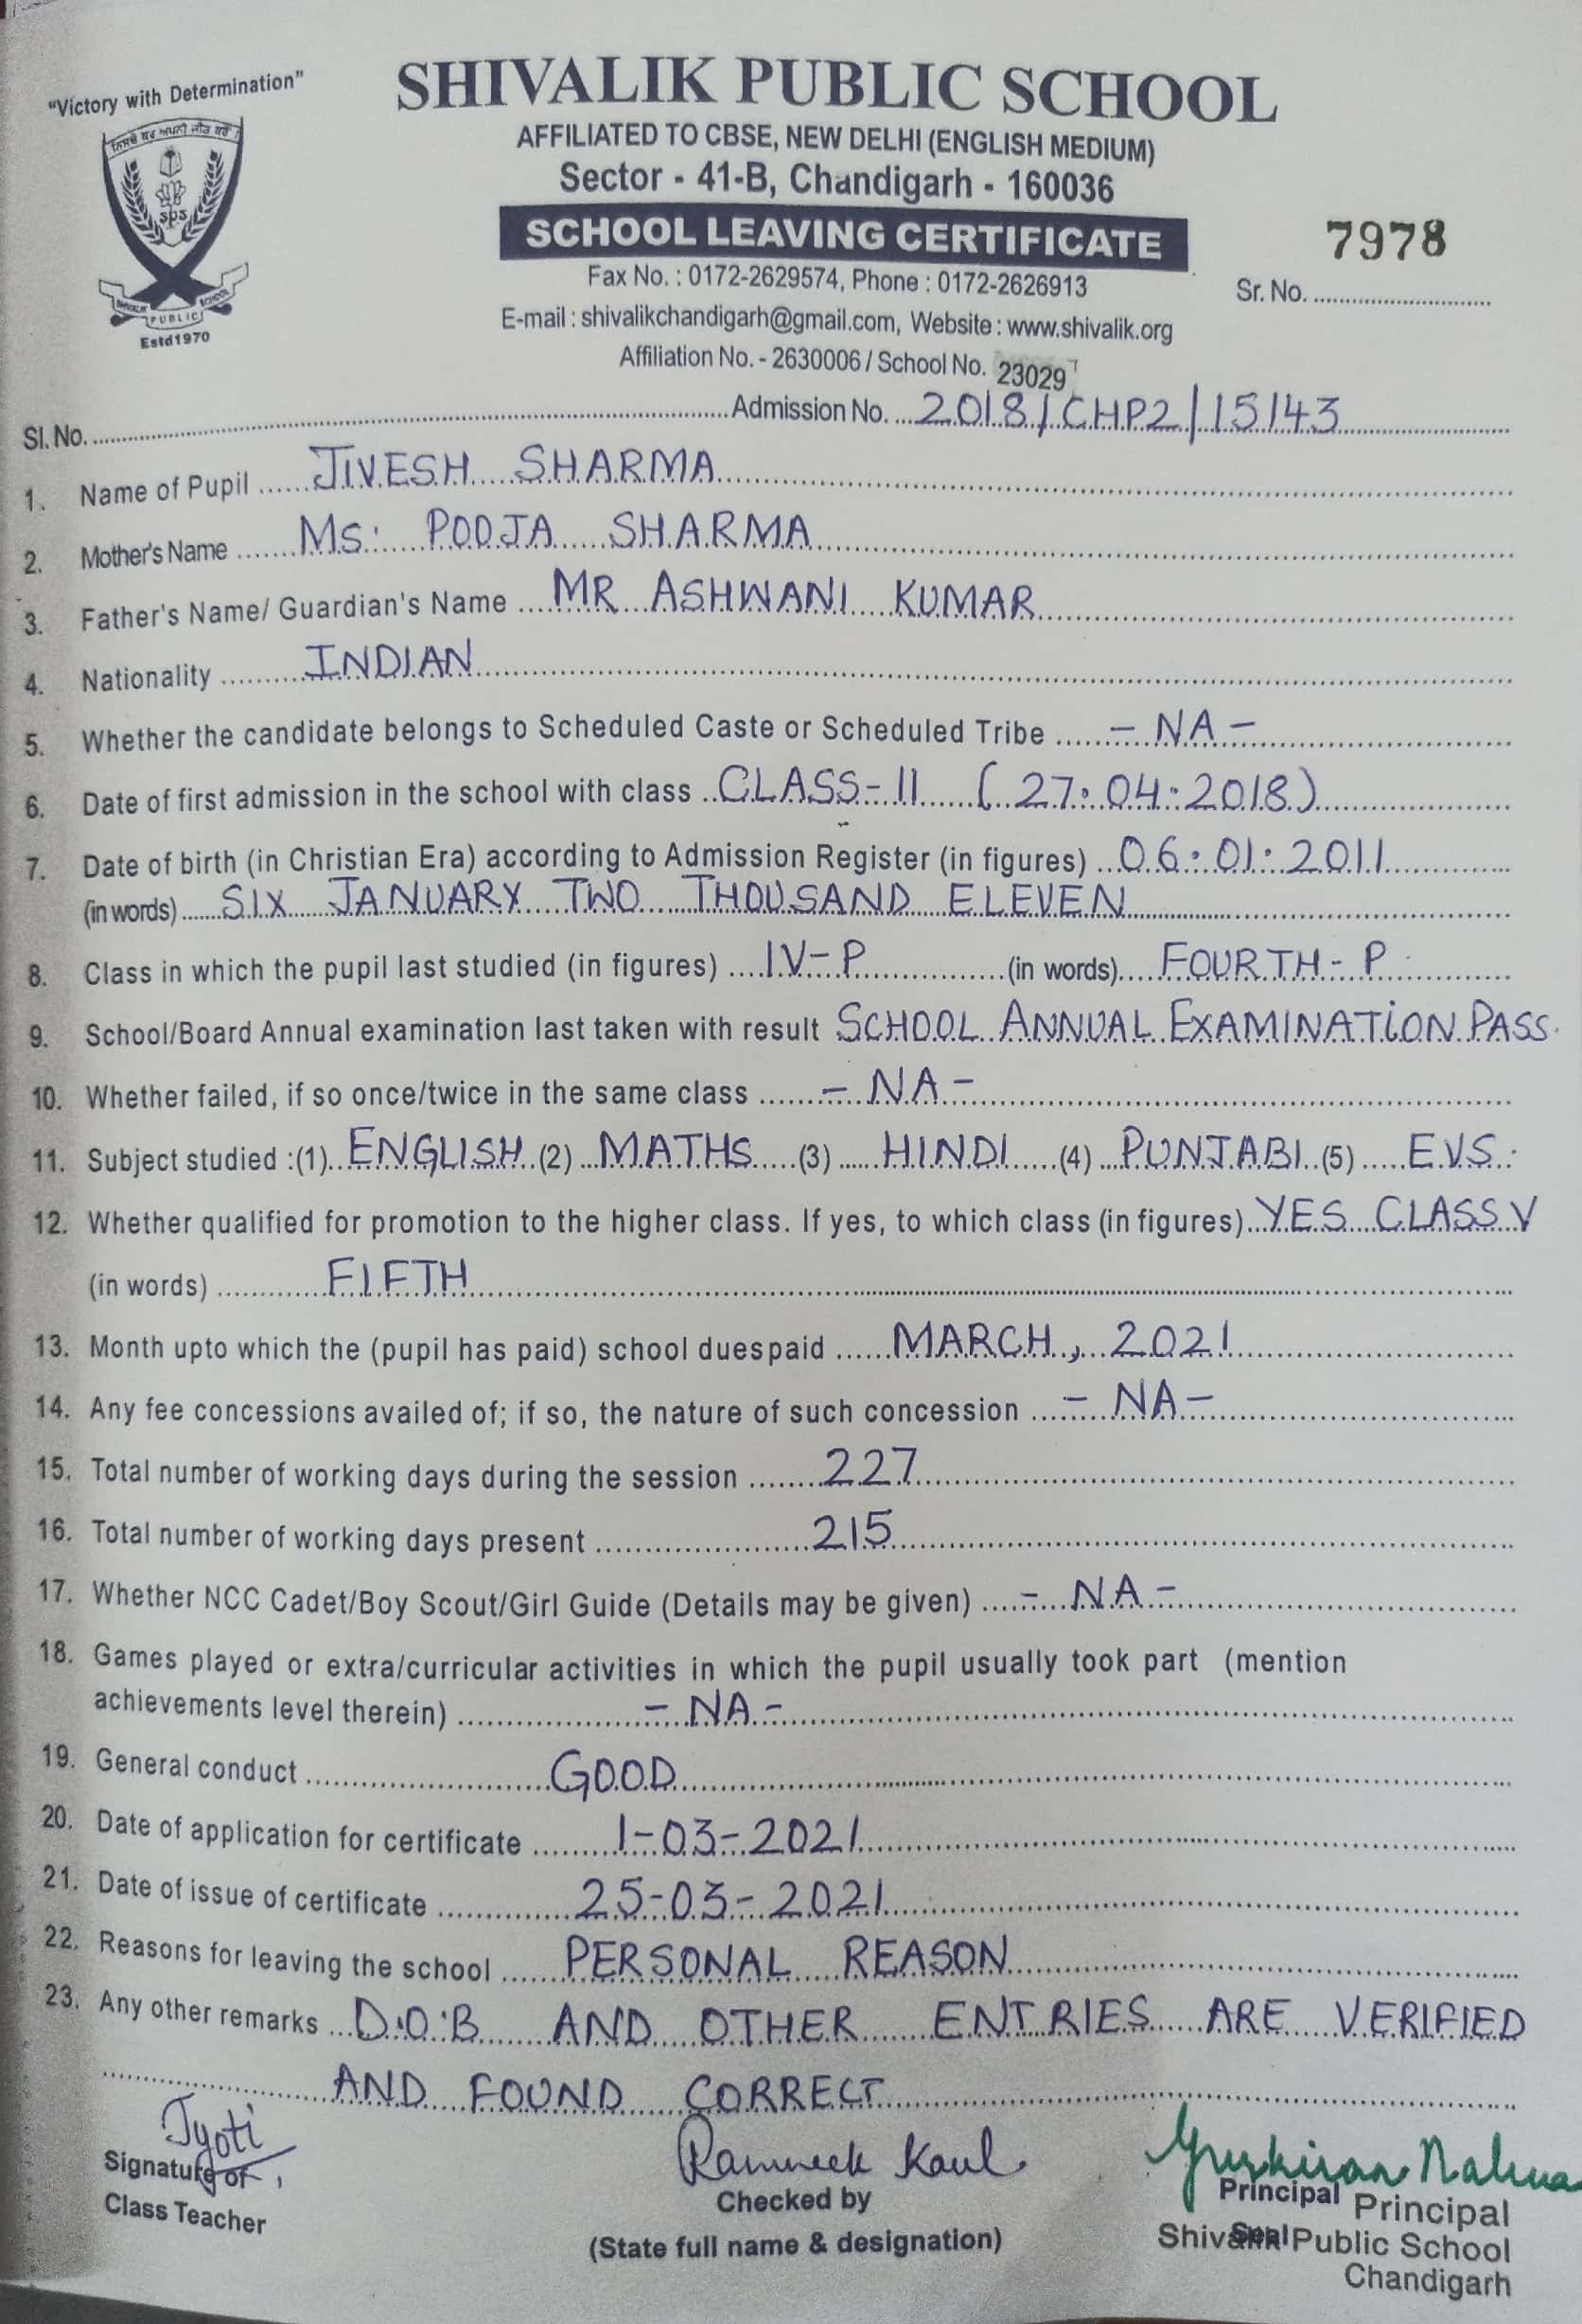 "Victory with Determination"
SHIVALIK PUBLIC SCHOOL
AFFILIATED TO CBSE, NEW DELHI (ENGLISH MEDIUM)
Sector - 41-B, Chandigarh - 160036
SCHOOL LEAVING CERTIFICATE
7978
Fax No. : 0172-2629574, Phone : 0172-2626913
Sr. No.
E-mail : shivalikchandigarh@gmail.com, Website : www.shivalik.org
sps
SHIVALIK PUBLIC SCHOOL
Estd1970
Affiliation No. - 2630006 / School No. 23029
Sl. No. Admission No. 2018/CHP2/15143
1. Name of Pupil JIVESH SHARMA
2. Mother's Name Ms. POOJA SHARMA
3. Father's Name/ Guardian's Name MR ASHWANI KUMAR
4. Nationality INDIAN
5. Whether the candidate belongs to Scheduled Caste or Scheduled Tribe - NA -
6. Date of first admission in the school with class CLASS-II (27.04.2018)
7. Date of birth (in Christian Era) according to Admission Register (in figures) 06.01.2011
(in words) SIX JANUARY TWO THOUSAND ELEVEN
8. Class in which the pupil last studied (in figures) IV-P (in words) FOURTH-P
9. School/Board Annual examination last taken with result SCHOOL ANNUAL EXAMINATION PASS.
10. Whether failed, if so once/twice in the same class - NA -
11. Subject studied :(1) ENGLISH (2) MATHS (3) HINDI (4) PUNJABI (5) E.V.S.
12. Whether qualified for promotion to the higher class. If yes, to which class (in figures) YES CLASS V
(in words) FIFTH
13. Month upto which the (pupil has paid) school duespaid MARCH, 2021
14. Any fee concessions availed of; if so, the nature of such concession - NA -
15. Total number of working days during the session 227
16. Total number of working days present 215
17. Whether NCC Cadet/Boy Scout/Girl Guide (Details may be given) - NA -
18. Games played or extra/curricular activities in which the pupil usually took part (mention
achievements level therein) - NA -
19. General conduct GOOD
20. Date of application for certificate 1-03-2021
21. Date of issue of certificate 25-03-2021
22. Reasons for leaving the school PERSONAL REASON
23. Any other remarks D.O.B AND OTHER ENTRIES ARE VERIFIED
AND FOUND CORRECT
Jyoti
Signature of
Class Teacher
Ramneek Kaul
Checked by
(State full name & designation)
Gurkiran
Principal
Seal
Principal
Shivalik Public School
Chandigarh